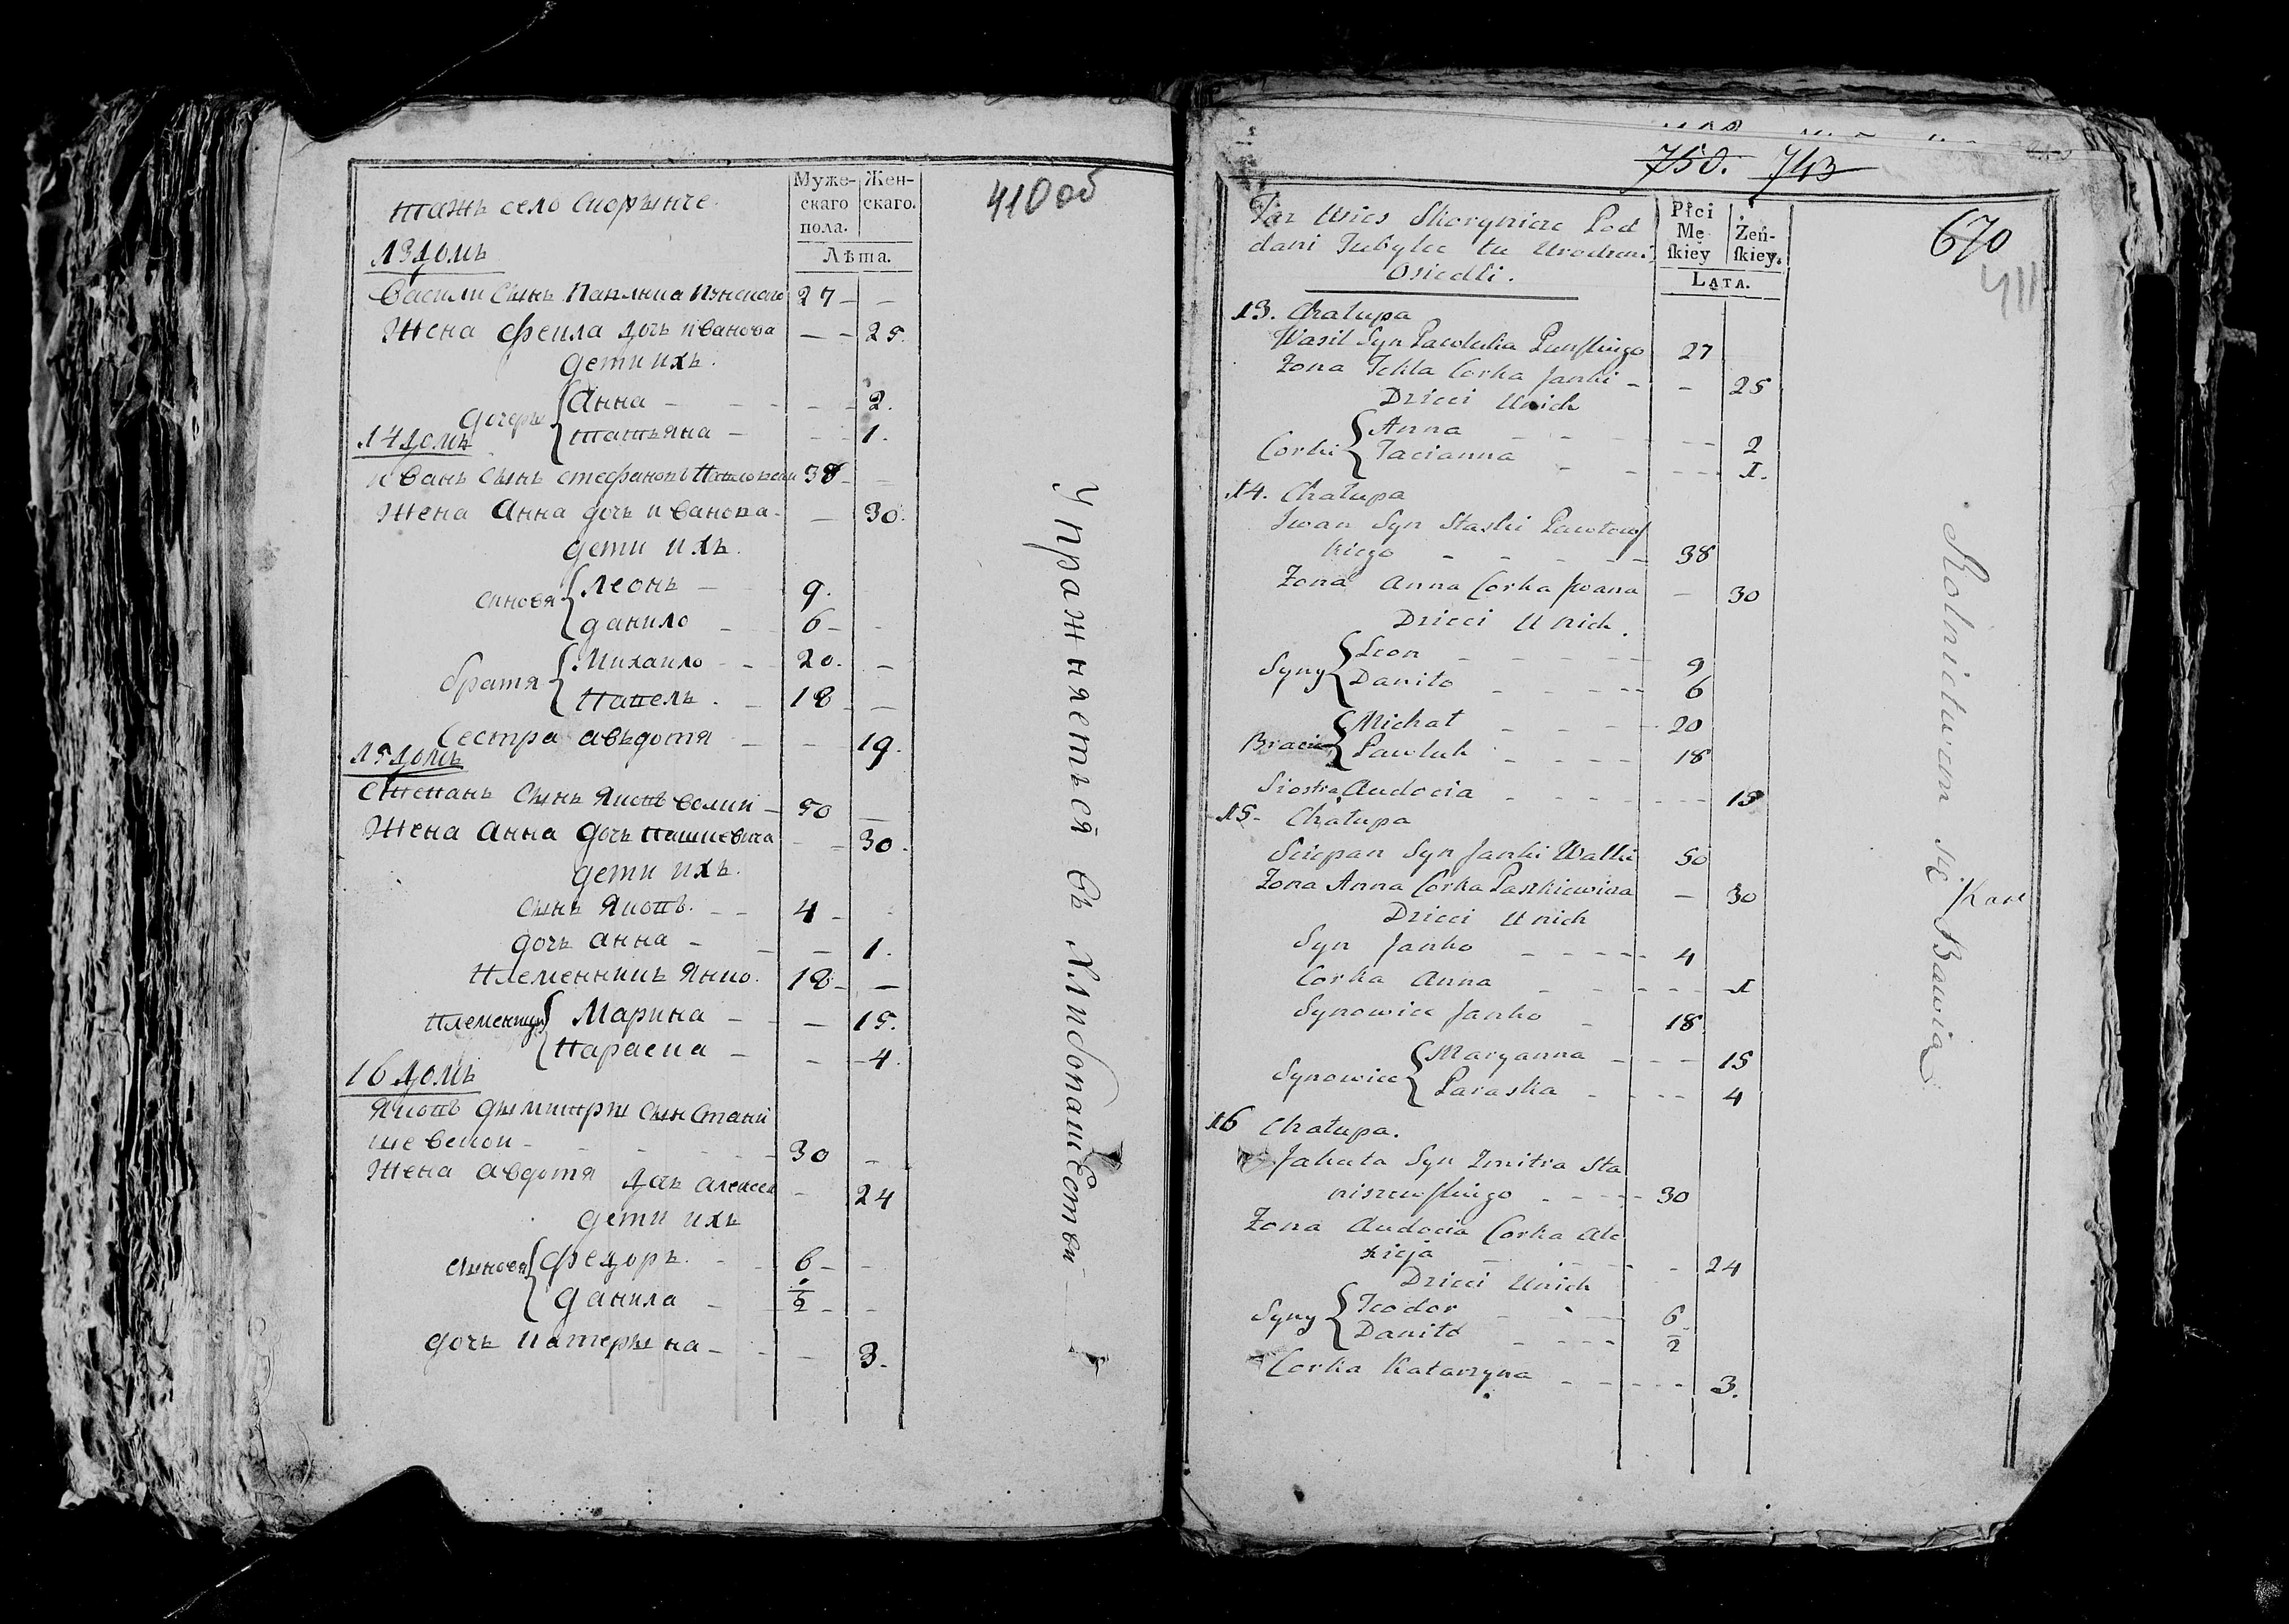 Муже-
скаго
пола.
Жен-
скаго.
Лѣта.
410 об
тажъ село Скорынче.
13 домъ
Васили Сынъ Павлюка Пунского 27 - -
Жена Фекла дочь иванова - - 25.
дети ихъ.
дочеры { Анна - - - 2.
татьяна - - - 1.
14 домъ
иванъ Сынъ стефановъ Павловски 38 - -
Жена Анна дочь иванова - - 30.
дети ихъ.
синовя { Леонъ - 9.
данило - 6 - -
братя { Михаило - - 20. -
Павелъ . - 18 - -
Сестра авъдотя - - 19.
15 домъ
Степанъ Сынъ Яковъ волки - 50 -
Жена Анна дочь пашкевича - - 30.
дети ихъ.
Сынъ Яковъ. - - 4 - -
дочь анна - - - 1.
Племенникъ Янко. 18 - -
Племеници { Марина - - - 15.
Параска - - - 4.
16 домъ
Яковъ дымитры сын Стани
шевской - 30 -
Жена авдотя дочъ алексея - 24
дети ихъ
сыновя { Федоръ. - - 6 - -
данила - 1/2 - -
дочъ катерына - - - 3.
Упражняеться въ хлибопашЕстви
750. 743
670
411
Płci
Mę
ſkiey
Żeń-
ſkiey.
Lata.
Taz Wies Skorynicze Pod
dani Tubylce tu Urodzeni
Osiedli.
13. Chałupa
Wasil Syn Pawluka Punſkiego 27
Zona Tekla Corka Janki - - 25
Dzieci Unich
Corki { Anna - - - 2
Tacianna - - - 1.
14. Chałupa
Iwan Syn Staski Pawłowſ
kiego - - - - 38
Zona Anna Corka Iwana - 30
Dzieci Unich.
Syny { Leon - - - 9
Daniło - - - 6
Bracia { Michał - - - 20
Pawluk - - - 18
Siostra Audocia - - - 19
15- Chałupa
Sciepan Syn Janki Walki 50
Zona Anna Corka Paszkiewicza - 30
Dzieci Unich
Syn Janko - - - 4
Corka Anna - - - 1
Synowiec Janko - 18
Synowice { Maryanna - - - 15
Paraska - - - 4
16 Chałupa.
Jakuta Syn Zmitra Sta
niszewſkiego - - - 30
Zona Audocia Corka Ale
xieja - - - 24
Dzieci Unich
Syny { Teodor - - - 6
Daniło - - - 1/2
Corka Katarzyna - - - 3.
Rolnictwem się Bawią